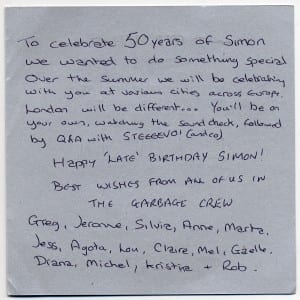 To celebrate 50 years of Simon
we wanted to do something special
Over the summer we will be celebrating
with you at various cities across Europe.
London will be different... You'll be on
your own, watching the soundcheck, followed
by Q&A with STEEEEVO! (and co)
HAPPY 'LATE' BIRTHDAY SIMON!
BEST WISHES FROM ALL OF US IN
THE GARBAGE CREW
Greg, Jeronne, Silvia, Anne, Marta,
Jess, Agota, Lou, Claire, Mel, Gaelle,
Diana, Michel, Kristina + Rob.